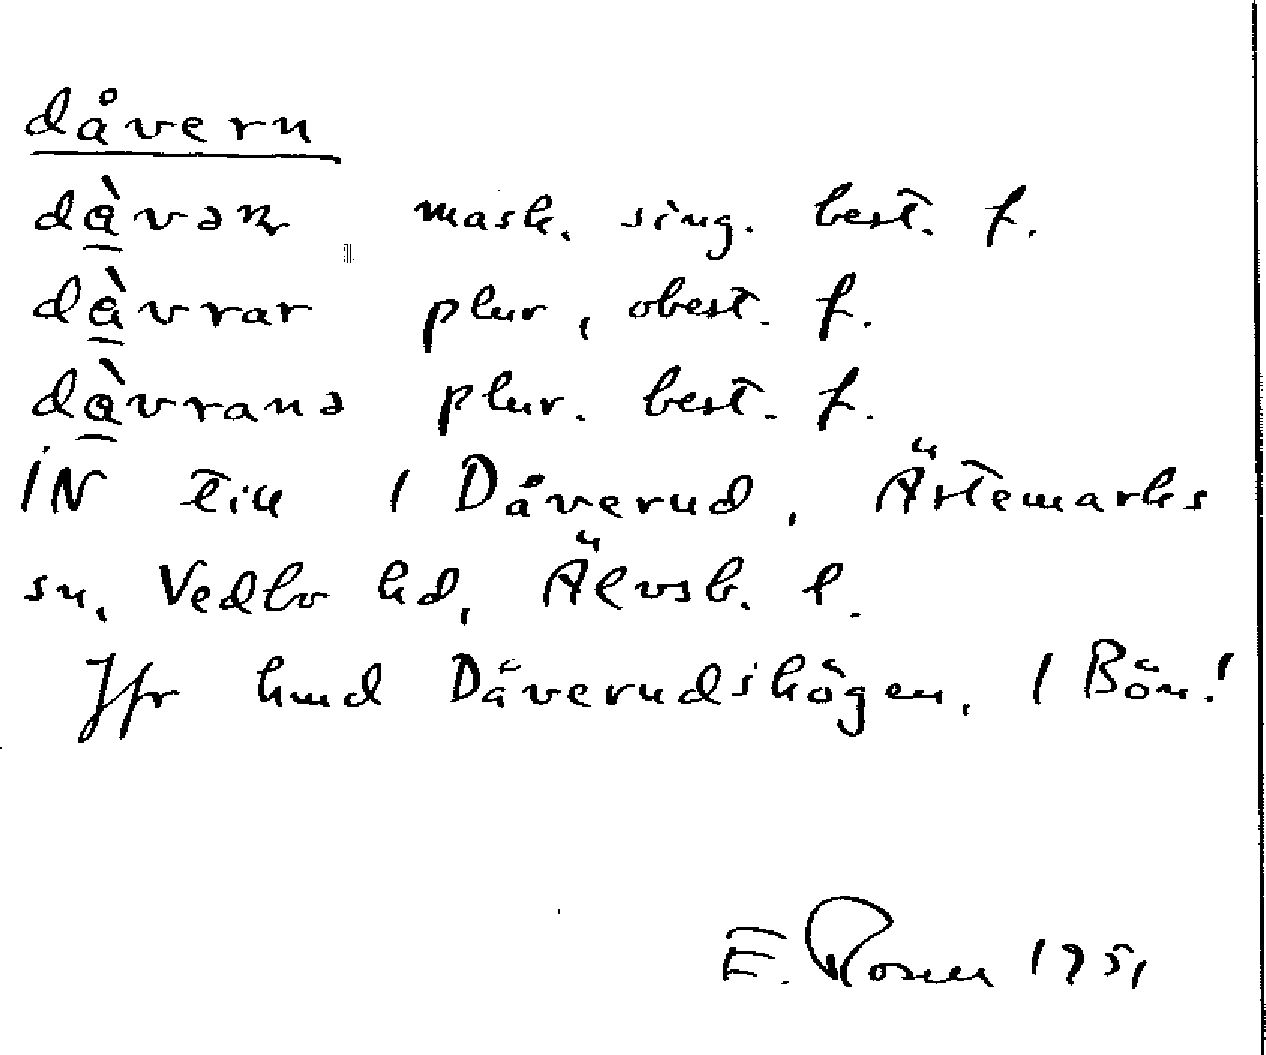 dåvern
dàvəɳ mask. sing. best. f.
dàvrar plur, obest. f.
dàvranə plur. best. f.
IN till 1 Dåverud, Ärtemarks
sn, Vedbo hd, Älvsb. l.
Jfr hmd Dåverudshögen, 1 Bön!
E. Rosell 1951